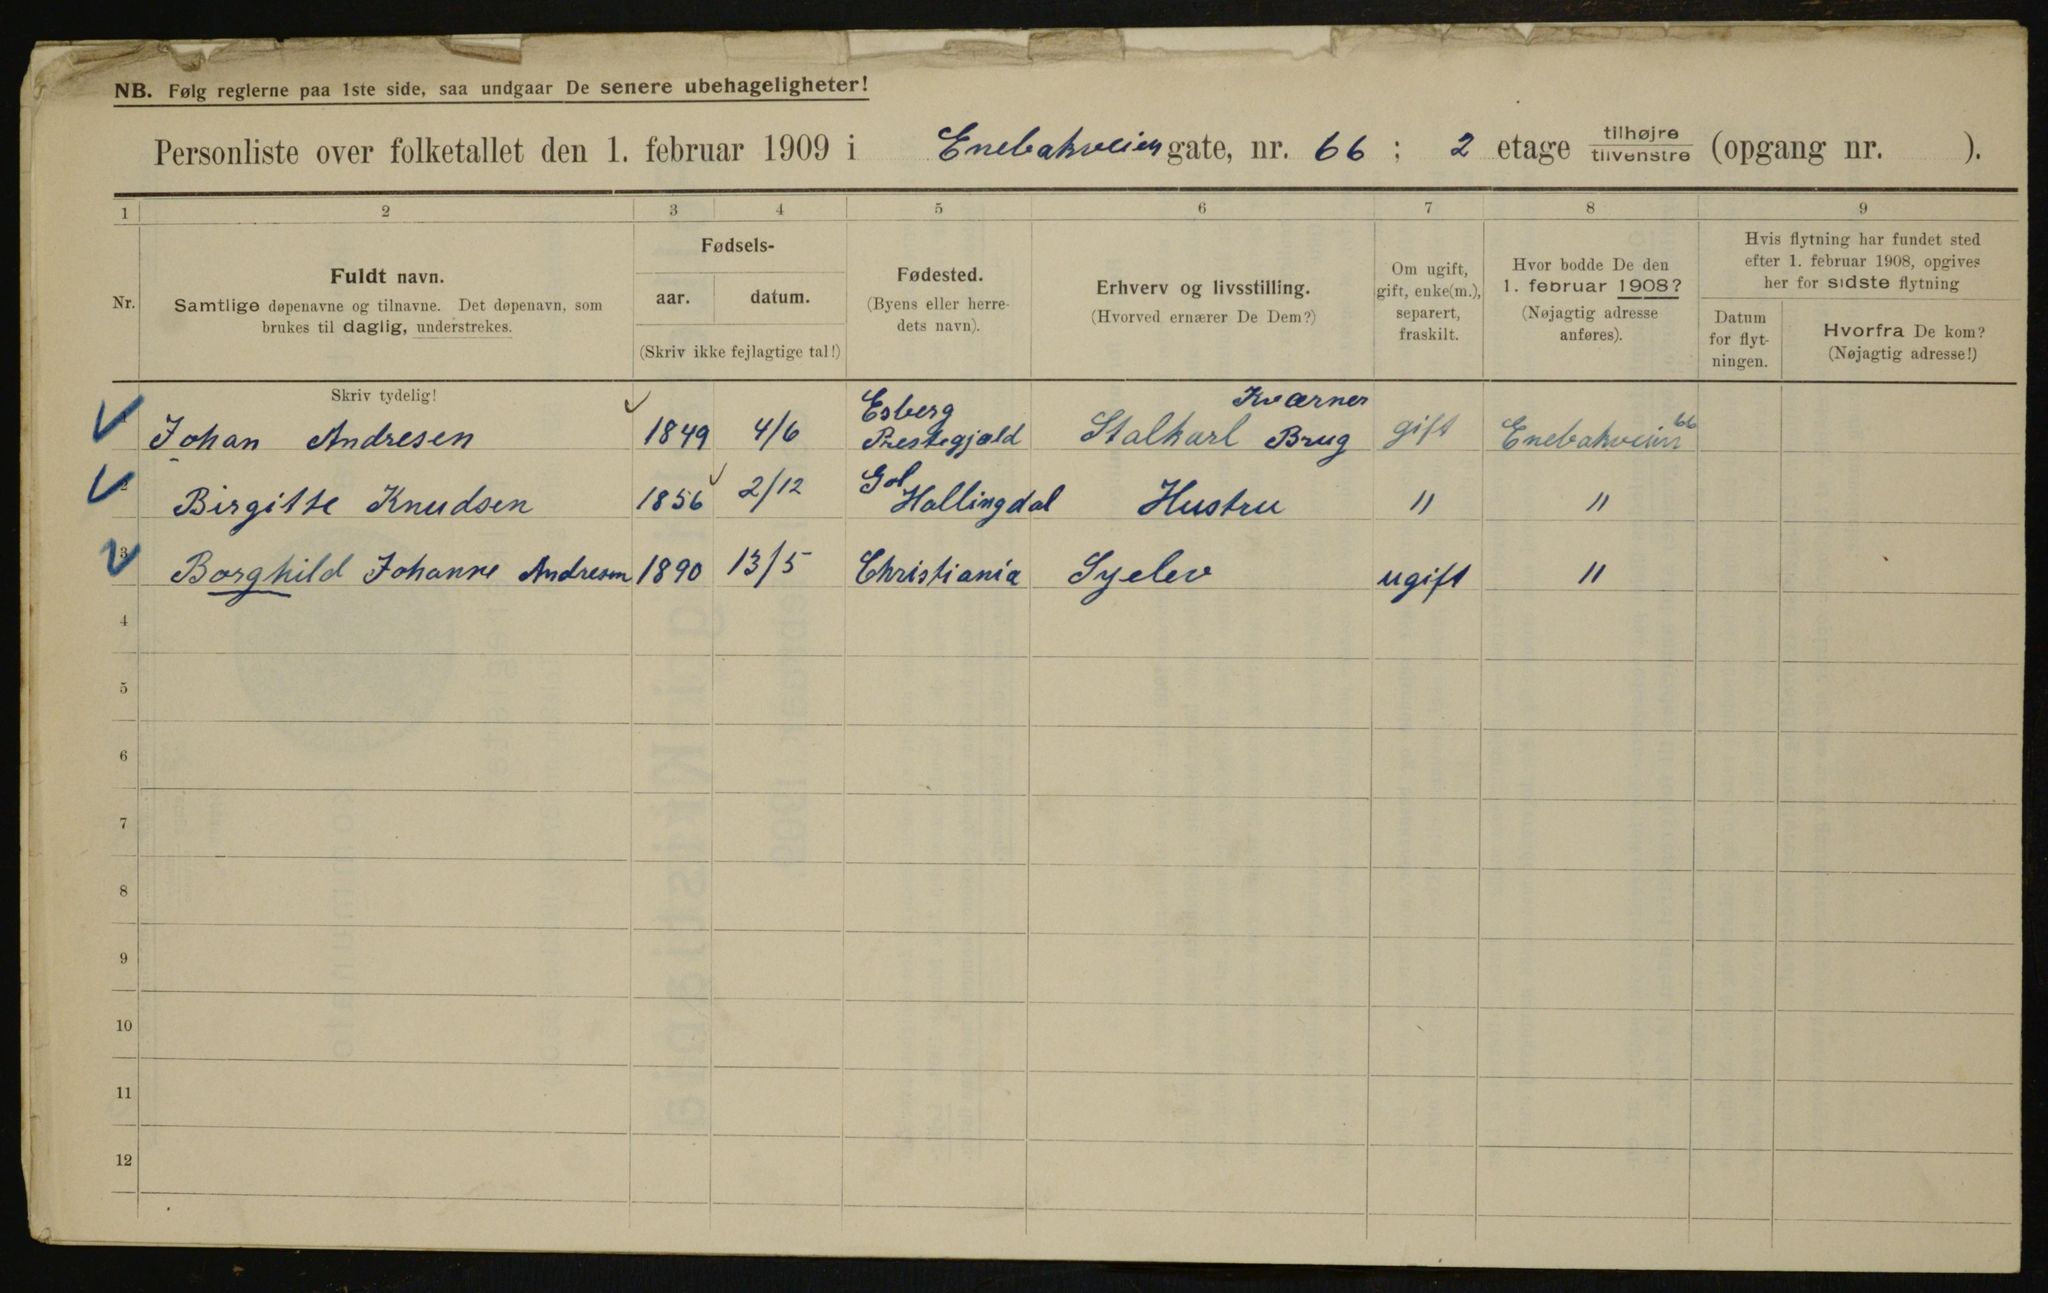 NB. Følg reglerne paa 1ste side, saa undgaar De senere ubehageligheter!
Personliste over folketallet den 1. februar 1909 i Enebakveien gate, nr. 66; 2 etage tilhøjre/tilvenstre (opgang nr. ).
1 2 3 4 5 6 7 8 9
Nr.
Fuldt navn.
Samtlige døpenavne og tilnavne. Det døpenavn, som
brukes til daglig, understrekes.
Fødsels-
aar. datum.
(Skriv ikke fejlagtige tal!)
Fødested.
(Byens eller herre-
dets navn).
Erhverv og livsstilling.
(Hvorved ernærer De Dem?)
Om ugift,
gift, enke(m.),
separert,
fraskilt.
Hvor bodde De den
1. februar 1908?
(Nøjagtig adresse
anføres).
Hvis flytning har fundet sted
efter 1. februar 1908, opgives
her for sidste flytning
Datum
for flyt-
ningen.
Hvorfra De kom?
(Nøjagtig adresse!)
Skriv tydelig!
Johan Andresen 1849 4/6 Esberg Prestegjæld Stalkarl Kværner Brug gift Enebakveien 66
2 Birgitte Knudsen 1856 2/12 Gol Hallingdal Hustru " "
3 Borghild Johanne Andresen 1890 13/5 Christiania Syelev ugift "
4
5
6
7
8
9
10
11
12